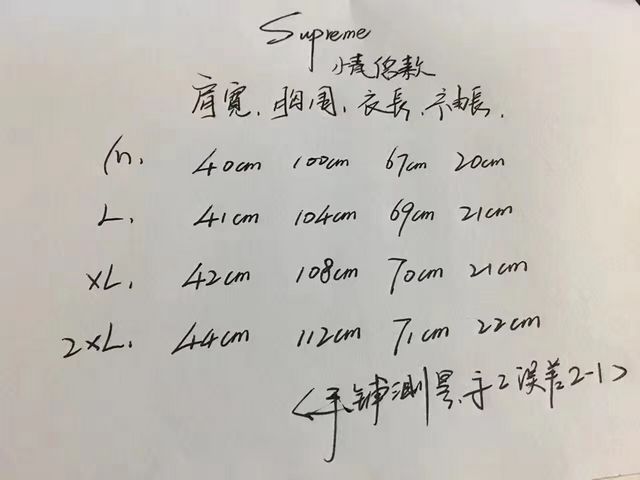 Supreme
情侣款
肩寬. 胸围. 衣長. 袖長.
m. 40cm 100cm 67cm 20cm
L. 41cm 104cm 69cm 21cm
XL. 42cm 108cm 70cm 21cm
2XL. 44cm 112cm 71cm 22cm
<平铺测量.手工误差2-1>